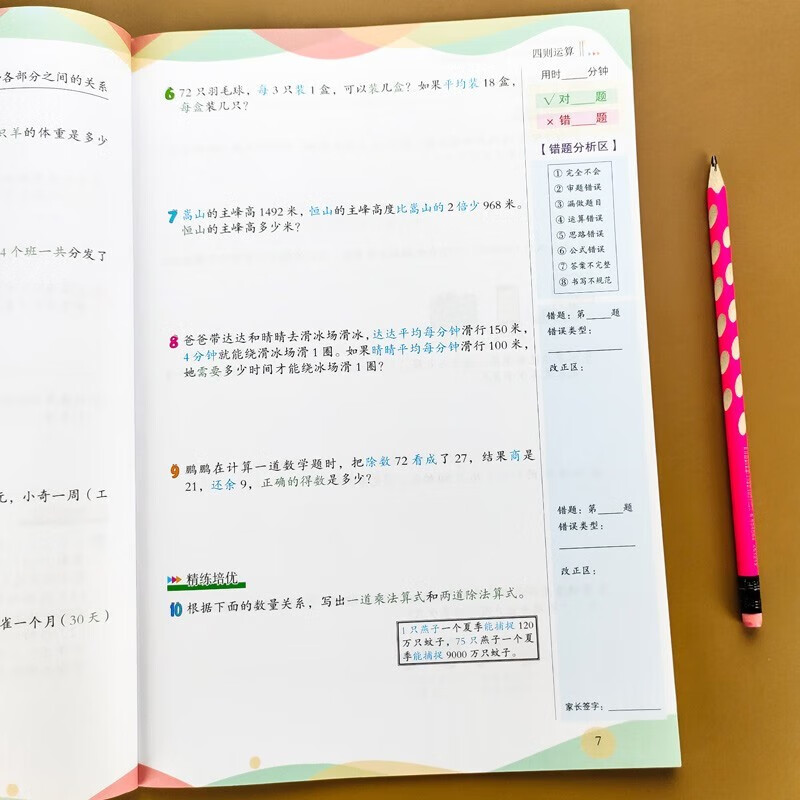 各部分之间的关系
羊的体重是多少
4个班一共分发了
元，小奇一周（工
雀一个月（30天）
四则运算
6 72只羽毛球，每3只装1盒，可以装几盒？如果平均装18盒，
每盒装几只？
7 嵩山的主峰高1492米，恒山的主峰高度比嵩山的2倍少968米。
恒山的主峰高多少米？
8 爸爸带达达和晴晴去滑冰场滑冰，达达平均每分钟滑行150米，
4分钟就能绕滑冰场滑1圈。如果晴晴平均每分钟滑行100米，
她需要多少时间才能绕冰场滑1圈？
9 鹏鹏在计算一道数学题时，把除数72看成了27，结果商是
21，还余9，正确的得数是多少？
精练培优
10 根据下面的数量关系，写出一道乘法算式和两道除法算式。
1只燕子一个夏季能捕捉120
万只蚊子，75只燕子一个夏
季能捕捉9000万只蚊子。
用时____分钟
√ 对____题
× 错____题
【错题分析区】
① 完全不会
② 审题错误
③ 漏做题目
④ 运算错误
⑤ 思路错误
⑥ 公式错误
⑦ 答案不完整
⑧ 书写不规范
错题：第____题
错误类型：
改正区：
错题：第____题
错误类型：
改正区：
家长签字：
7